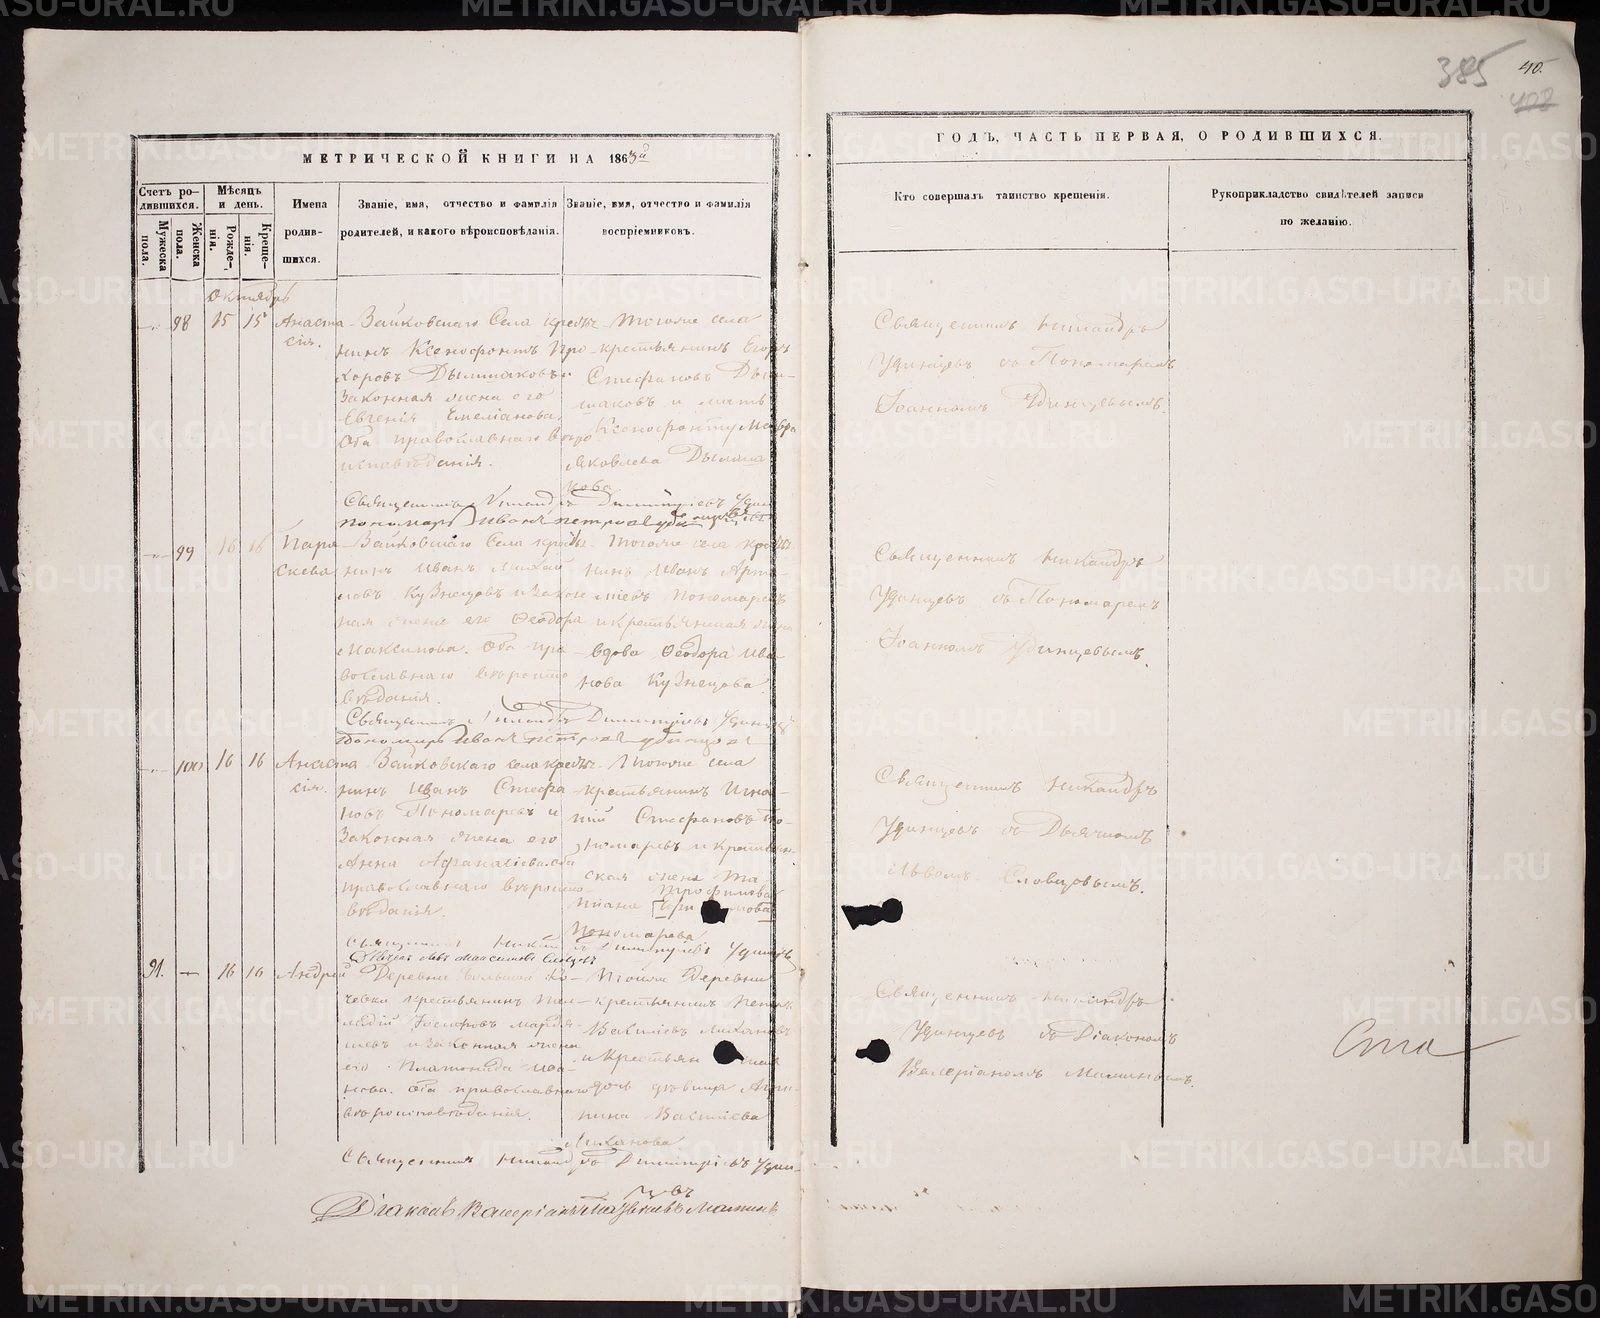 385
40.
408
МЕТРИЧЕСКОЙ КНИГИ НА 1863й
ГОДЪ, ЧАСТЬ ПЕРВАЯ, О РОДИВШИХСЯ.
Счетъ ро-
дившихся.
Мужеска пола.
Женска пола.
Мѣсяцъ
и день.
Рожде-
нія.
Креще-
нія.
Имена
родив-
шихся.
Званіе, имя, отчество и фамилія
родителей, и какого вѣроисповѣданія.
Званіе, имя, отчество и фамилія
воспріемниковъ.
Кто совершалъ таинство крещенія.
Рукоприкладство свидѣтелей записи
по желанію.
Октябрь
98 15 15 Анаста
сія.
Зайковскаго Села крестья
нинъ Ксенофонтъ Про
хоровъ Дымшаковъ и
Законная жена его
Евгенія Емеліанова.
Оба православнаго вѣро
исповѣданія.
Тогоже села
крестьянинъ Егоръ
Стефановъ Дым-
шаковъ и мать
Ксенофонту Мавра
Яковлева Дымша
кова
Священникъ Никандръ
Удинцевъ съ Пономаремъ
Іоанномъ Удинцевымъ.
Священникъ Никандръ Димитріевъ Удин
Пономарь Иванъ Петровъ Удинцовъ
99 16 16 Пара
скева
Зайковскаго Села крестья
нинъ Иванъ Михай
ловъ Кузнецовъ и Закон
ная жена его Ѳеодора
Максимова. Оба пра
вославнаго вѣроиспо
вѣданія.
Тогоже села крестья
нинъ Иванъ Арте
міевъ Пономаревъ
и крестьянская жена
вдова Ѳеодора Ива
нова Кузнецова.
Священникъ Никандръ
Удинцевъ съ Пономаремъ
Іоанномъ Удинцевымъ.
Священникъ Никандръ Димитріевъ Удинцевъ
Пономарь Иванъ Петровъ Удинцовъ
100 16 16 Анаста
сія.
Зайковскаго села крестья
нинъ Иванъ Стефа
новъ Пономаревъ и
Законная жена его
Анна Афанасіева. Оба
православнаго вѣроиспо-
вѣданія.
Тогоже села
крестьянинъ Игна
тій Стефановъ По-
номаревъ и крестьян-
ская жена Та
тіана Трофимова
Пономарева
Священникъ Никандръ
Удинцевъ съ Дьячкомъ
Львомъ Словцовымъ.
Священникъ Никандръ Димитріевъ Удинцевъ
Дьячекъ Левъ Максимовъ Словцовъ
91. — 16 16 Андрей
Деревни Большой Ко-
чевки крестьянинъ Пал-
ладій Іосифовъ Мордя-
шевъ и Законная жена
его Платонида Ива-
нова. Оба православнаго
вѣроисповѣданія.
Тойже Деревни
крестьянинъ Петръ
Василіевъ Лихановъ
и Крестьян
дочь дѣвица Агри
пина Василіева
Лиханова
Священникъ Никандръ
Удинцевъ съ Діакономъ
Валеріаномъ Маминымъ.
Священникъ Никандръ Димитріевъ Удин-
цевъ
Діаконъ Валеріанъ Маминъ